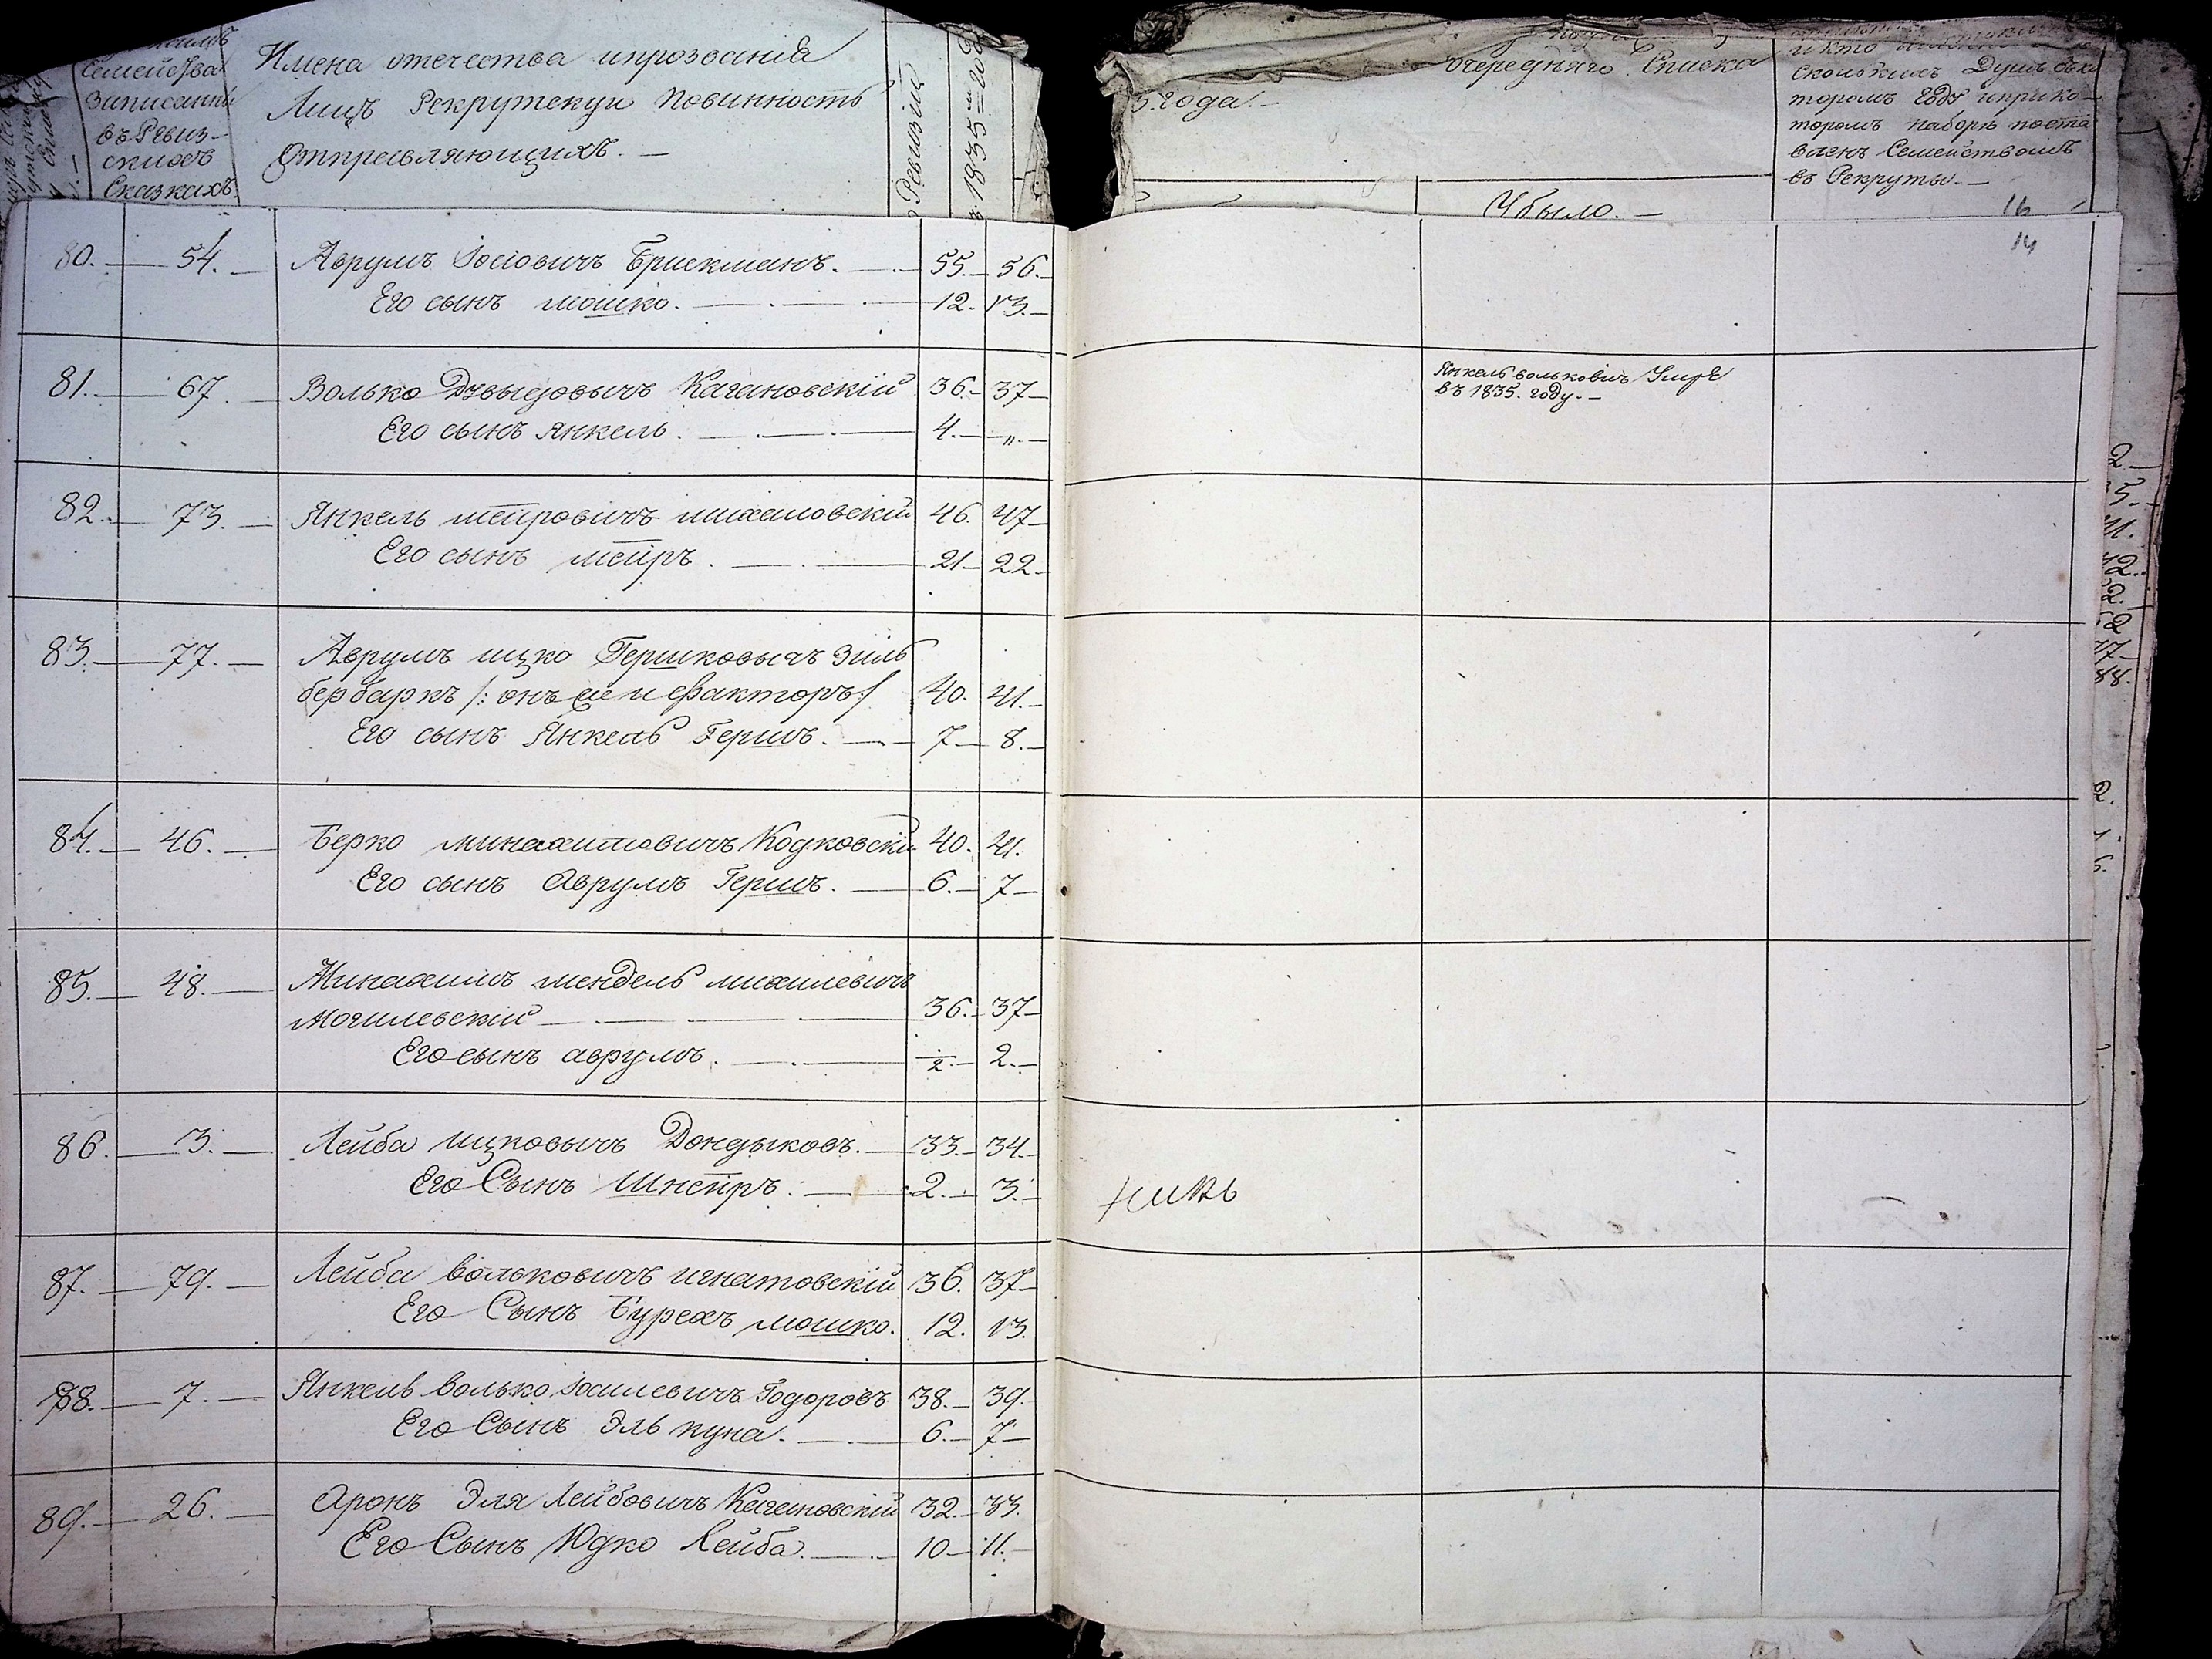 Семейства
Записаннаго
въ Ревиз-
скихъ
Сказкахъ.
Имена отечества ипрозванiе
Лицъ Рекрутскую Повинность
Отправляющихъ. —
Ревизiи
1835=го
5. года. —
очереднаго Списка
Убыло. —
сколькимъ Душъ въ ко
торомъ году ипри ко-
торомъ наборе поста
вленъ Семействомъ
въ Рекруты. —
16
14
80. — 54. — Аврумъ Iосiовичъ Брискманъ. — 55. — 56. —
Его сынъ мошко. — 12. 13. —
81. — 67. — Волько Дувыдовичъ Кагановскiй 36. — 37 —
Его сынъ янкель. — 4. — „ —
Янкель вольковичъ Умре
въ 1835. году. —
82. — 73. — Янкель мейровичъ михайловскiй 46. 47 —
Его сынъ мейръ. — 21 — 22 —
83. — 77. — Аврумъ ицко Гершковычъ Зиль
бербаркъ /: онъ же и факторъ / 40. 41. —
Его сынъ Янкель Гершъ. — 7 — 8. —
84. — 46. — Берко минахимовичъ Кодковскiй 40. 41.
Его сынъ Аврумъ Гершъ. — 6. — 7 —
85. — 48. — Минахимъ мендель михилевичъ
Могилевскiй — 36. — 37 —
Его сынъ аврумъ. — 1/2. — 2. —
86. — 3. — Лейба ицковычъ Дондыковъ. — 33. — 34. —
Его Сынъ Шнейръ. — 2. — 3. —
87. — 79. — Лейба вольковичъ игнатовскiй 36. 37 —
Его Сынъ Бурехъ мошко. 12. 13.
88. — 7. — Янкель волько Iосилевичъ Годоровъ 38. — 39.
Его Сынъ Эль куна. — 6. — 7 —
89. — 26. — Аронъ Эля Лейбовичъ Кагановскiй 32. — 33.
Его Сынъ Юдко Лейба. — 10 — 11. —
2. —
5. —
11.
12.
2.
2
17 —
88.
2.